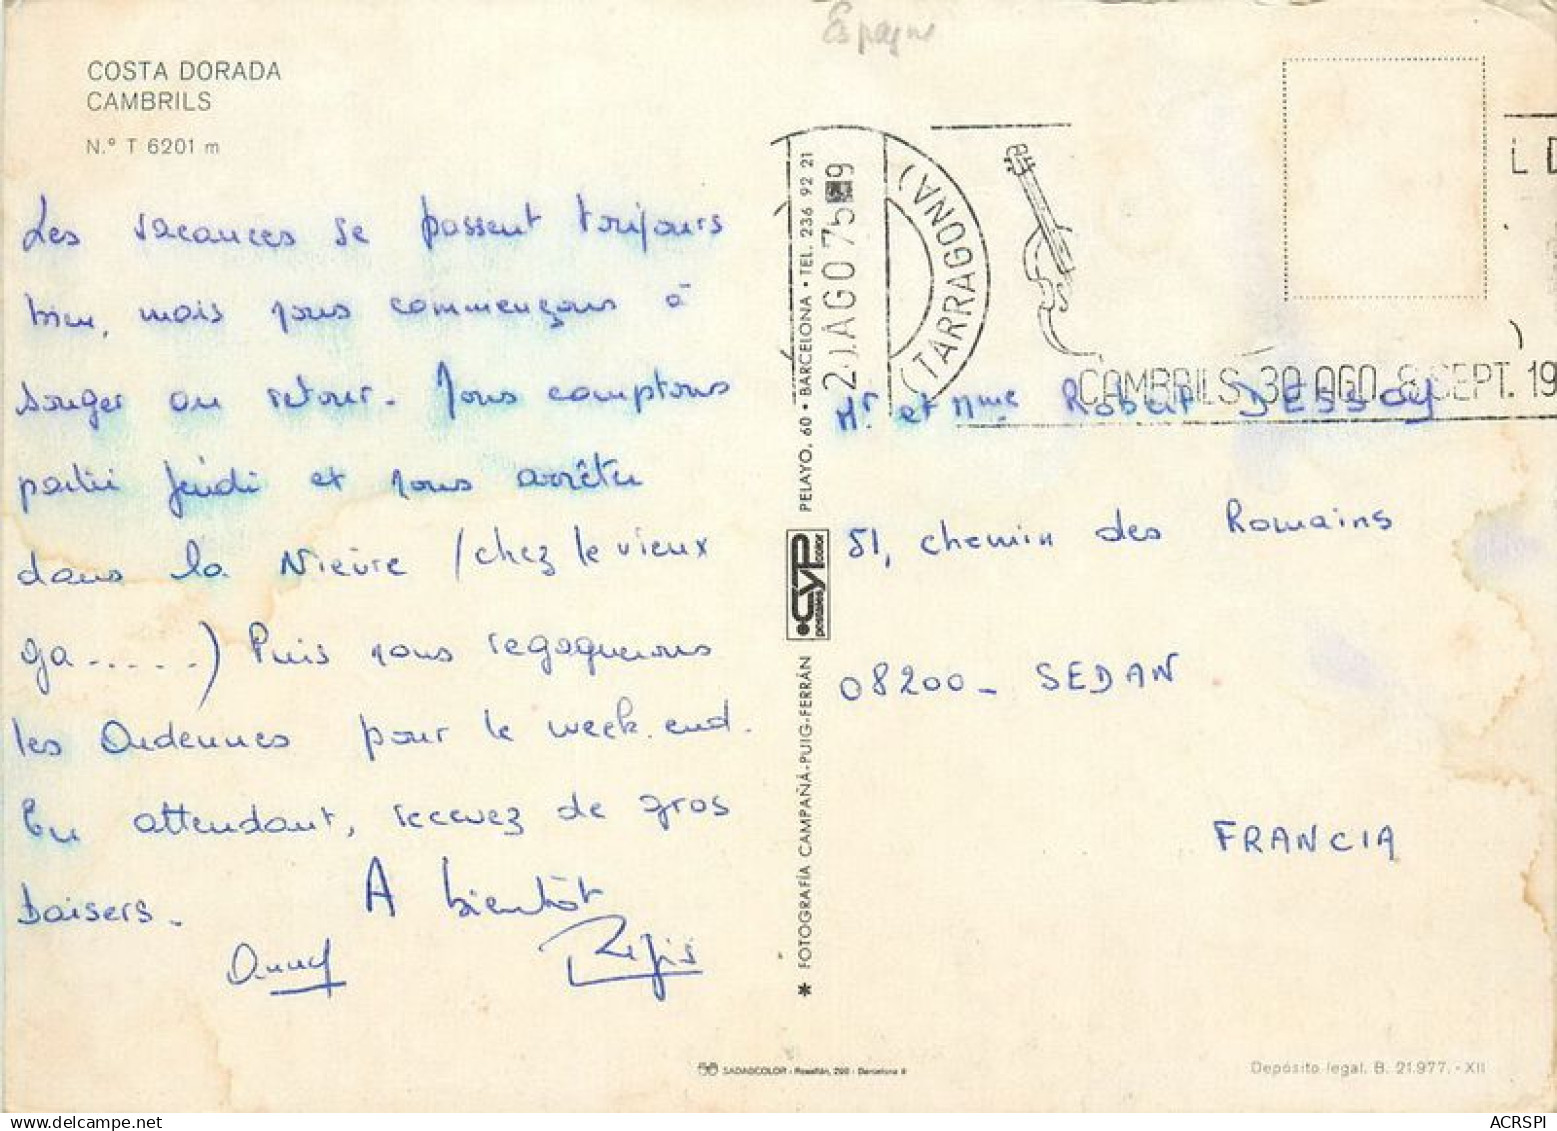 Espagne
COSTA DORADA
CAMBRILS
N.º T 6201 m
Les vacances se passent toujours
bien, mais nous commençons à
songer au retour. Nous comptons
partir Jeudi et nous arrêter
dans la Nièvre (chez le vieux
ga.....) Puis nous regagnerons
les Ardennes pour le week.end.
En attendant, recevez de gros
baisers. A bientôt
Anny Régis
PELAYO, 60 • BARCELONA • TEL. 236 92 21
CYP color
postales
* FOTOGRAFÍA CAMPAÑÁ-PUIG-FERRÁN
AGO 75
(TARRAGONA)
L D
CAMBRILS 30 AGO. 8 SEPT. 19
Mr et Mme Robert DESSOY
51, chemin des Romains
08200 - SEDAN
FRANCIA
SADAGCOLOR - Rosellón, 298 - Barcelona
Depósito legal. B. 21.977. - XII
ACRSPI